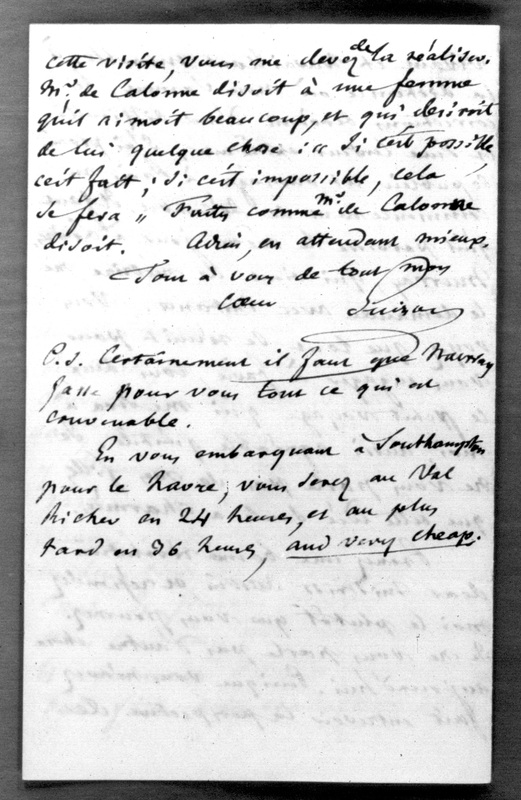 cette visite, vous me devez de la réaliser.
Mr. de Calonne disoit à une femme
qu'il aimoit beaucoup, et qui desiroit
de lui quelque chose : " Si c'est possible
c'est fait ; si c'est impossible, cela
se fera " Faites comme Mr. de Calonne
disoit. Adieu, en attendant mieux.
Tout à vous de tout mon
Cœur Guizot
P.S. Certainement il faut que Murray
fasse pour vous tout ce qui est
convenable.
En vous embarquant à Southampton
pour le havre, vous serez au Val
Richer en 24 heures, et au plus
tard en 36 heures, and very cheap.